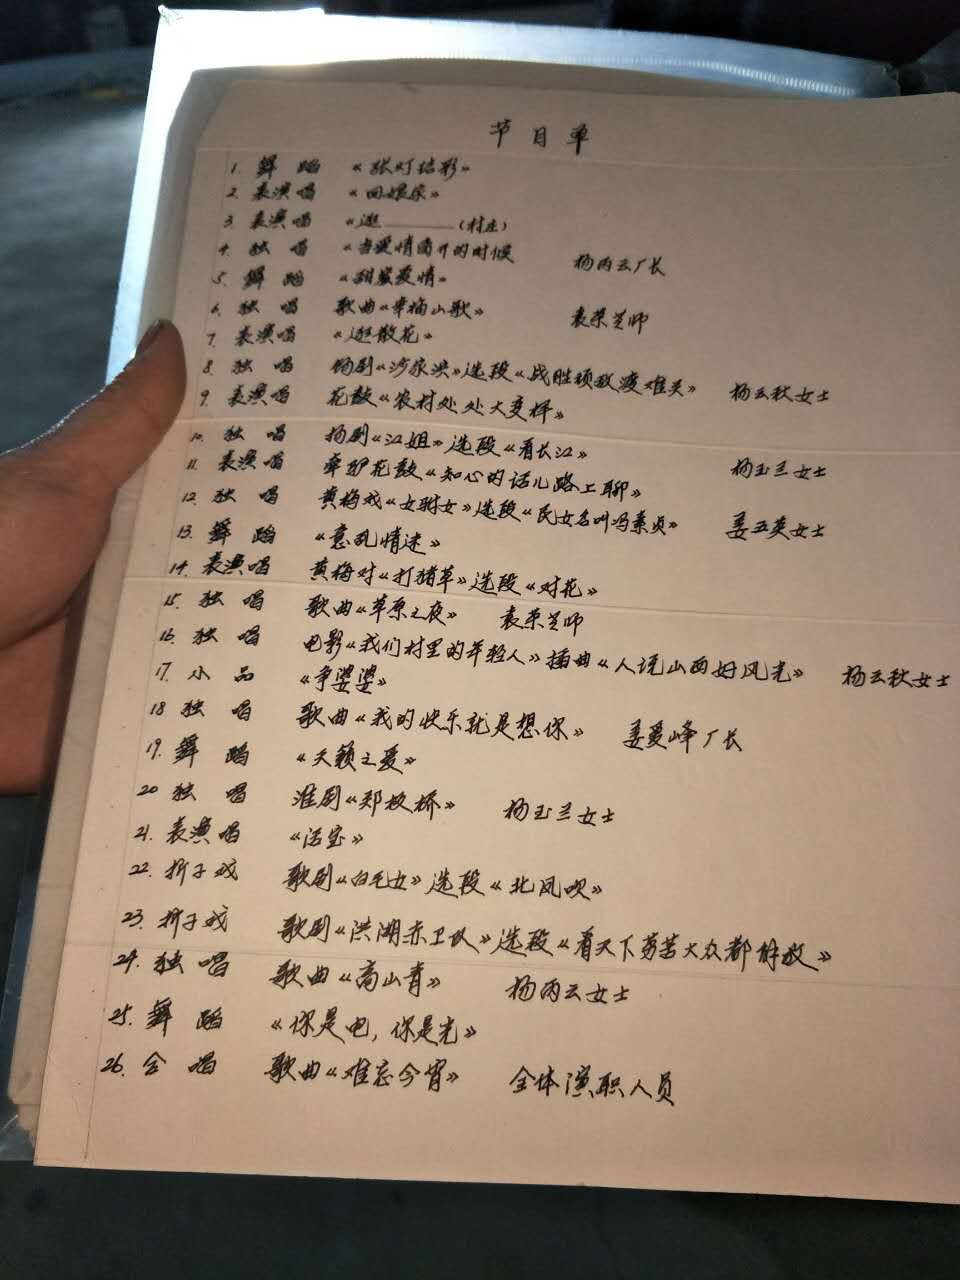 节目单
1. 舞蹈 《张灯结彩》
2. 表演唱 《回娘家》
3. 表演唱 《逛______(村庄)
4. 独唱 《当爱情离开的时候 杨丙云厂长
5. 舞蹈 《甜蜜爱情》
6. 独唱 歌曲《幸福山歌》 袁荣兰师
7. 表演唱 《逛散花》
8. 独唱 扬剧《沙家浜》选段《战胜顽敌渡难关》 杨云秋女士
9. 表演唱 花鼓《农村处处大变样》
10. 独唱 扬剧《江姐》选段《看长江》 杨玉兰女士
11. 表演唱 牵驴花鼓《知心的话儿路上聊》
12. 独唱 黄梅戏《女驸女》选段《民女名叫冯素贞》 姜五英女士
13. 舞蹈 《意乱情迷》
14. 表演唱 黄梅对《打猪草》选段《对花》
15. 独唱 歌曲《草原之夜》 袁荣兰师
16. 独唱 电影《我们村里的年轻人》插曲《人说山西好风光》 杨云秋女士
17. 小品 《争婆婆》
18 独唱 歌曲《我的快乐就是想你》 姜爱峰厂长
19. 舞蹈 《天籁之爱》
20 独唱 淮剧《郑板桥》 杨玉兰女士
21. 表演唱 《活宝》
22. 折子戏 歌剧《白毛女》选段《北风吹》
23. 折子戏 歌剧《洪湖赤卫队》选段《看天下劳苦大众都解放》
24. 独唱 歌曲《高山青》 杨丙云女士
25. 舞蹈 《你是电,你是光》
26. 合唱 歌曲《难忘今宵》 全体演职人员